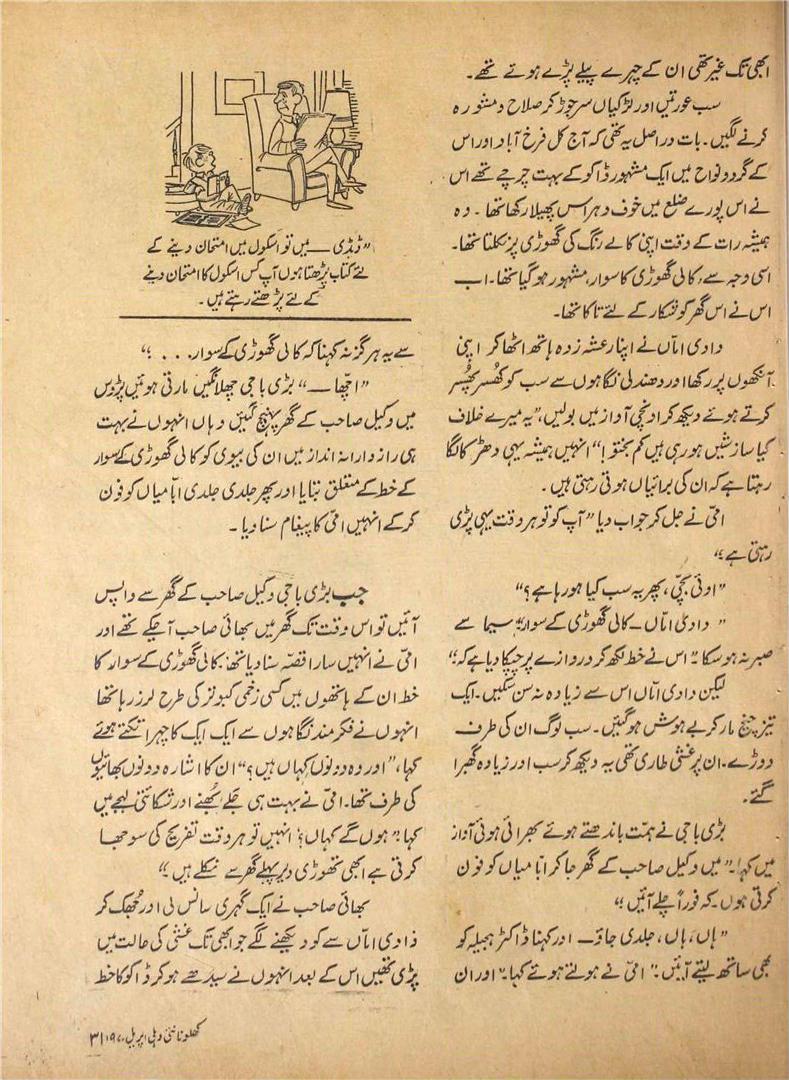 ابھی تک غیر تھی ان کے چہرے پیلے پڑے ہوئے تھے۔
سب عورتیں اور لڑکیاں سر جوڑ کر صلاح و مشورہ
کرنے لگیں۔ بات دراصل یہ تھی کہ آج کل فرخ آباد اور اس
کے گرد و نواح میں ایک مشہور ڈاکو کے بہت چرچے تھے اس
نے اس پورے ضلع میں خوف و ہراس پھیلا رکھا تھا۔ وہ
ہمیشہ رات کے وقت اپنی کالے رنگ کی گھوڑی پر نکلتا تھا۔
اسی وجہ سے، کالی گھوڑی کا سوار، مشہور ہو گیا تھا۔ اب
اس نے اس گھر کو شکار کے لئے تاکا تھا۔
دادی اماں نے اپنا رعشہ زدہ ہاتھ اٹھا کر اپنی
آنکھوں پر رکھا اور دھندلی نگاہوں سے سب کو کُھسر پُھسر
کرتے ہوئے دیکھ کر اونچی آواز میں بولیں، ”یہ میرے خلاف
کیا سازشیں ہو رہی ہیں کم بختو!“ انہیں ہمیشہ یہی دھڑکا لگا
رہتا ہے کہ ان کی برائیاں ہوتی رہتی ہیں۔
امّی نے جل کر جواب دیا ”آپ کو تو ہر وقت یہی پڑی
رہتی ہے“
”اوئی بچّی، پھر یہ سب کیا ہو رہا ہے؟“
”دادی امّاں ـ کالی گھوڑی کے سوار“ سیما سے
صبر نہ ہو سکا۔ ”اس نے خط لکھ کر دروازے پر چپکا دیا ہے کہ“
لیکن دادی امّاں اس سے زیادہ نہ سن سکیں۔ ایک
تیز چیخ مار کر بے ہوش ہو گئیں۔ سب لوگ ان کی طرف
دوڑے۔ ان پر غشی طاری تھی یہ دیکھ کر سب اور زیادہ گھبرا
گئے۔
بڑی باجی نے ہمّت باندھتے ہوئے بھرائی ہوئی آواز
میں کہا۔ ”میں وکیل صاحب کے گھر جا کر ابّا میاں کو فون
کرتی ہوں۔ کہ فوراً چلے آئیں“
”ہاں، ہاں، جلدی جاؤ ـ اور کہنا ڈاکٹر جمیلہ کو
بھی ساتھ لیتے آئیں۔“ امّی نے ہولتے ہوئے کہا۔ ”اور ان
”ڈیڈی ـــ میں تو اسکول میں امتحان دینے کے
لئے کتاب پڑھتا ہوں آپ کس اسکول کا امتحان دینے
کے لئے پڑھتے رہتے ہیں۔
سے یہ ہرگز نہ کہنا کہ کالی گھوڑی کے سوار...“
”اچھا ـــ“ بڑی باجی چھلانگیں مارتی ہوئیں پڑوس
میں وکیل صاحب کے گھر پہنچ گئیں وہاں انہوں نے بہت
ہی رازدارانہ انداز میں ان کی بیوی کو کالی گھوڑی کے سوار
کے خط کے متعلق بتایا اور پھر جلدی جلدی ابّا میاں کو فون
کر کے انہیں امّی کا پیغام سنا دیا۔
جب بڑی باجی وکیل صاحب کے گھر سے واپس
آئیں تو اس وقت تک گھر میں بھائی صاحب آ چکے تھے اور
امّی نے انہیں سارا قصّہ سنا دیا تھا۔ کالی گھوڑی کے سوار کا
خط ان کے ہاتھوں میں کسی زخمی کبوتر کی طرح لرز رہا تھا
انہوں نے فکر مند نگاہوں سے ایک ایک کا چہرا تکتے ہوئے
کہا، ”اور وہ دونوں کہاں ہیں؟“ ان کا اشارہ دونوں بھائیوں
کی طرف تھا۔ امّی نے بہت ہی جلے بُھنے اور شکائتی لہجے میں
کہا ”ہوں گے کہاں؟ انہیں تو ہر وقت تفریح کی سوجھا
کرتی ہے ابھی تھوڑی دیر پہلے گھر سے نکلے ہیں“
بھائی صاحب نے ایک گہری سانس لی اور جُھک کر
دادی امّاں سے کو دیکھنے لگے جو ابھی تک غشی کی حالت میں
پڑی تھیں اس کے بعد انہوں نے سیدھے ہو کر ڈاکو کا خط
کھلونا نئی دہلی اپریل ۱۹۷۰ ۳۱